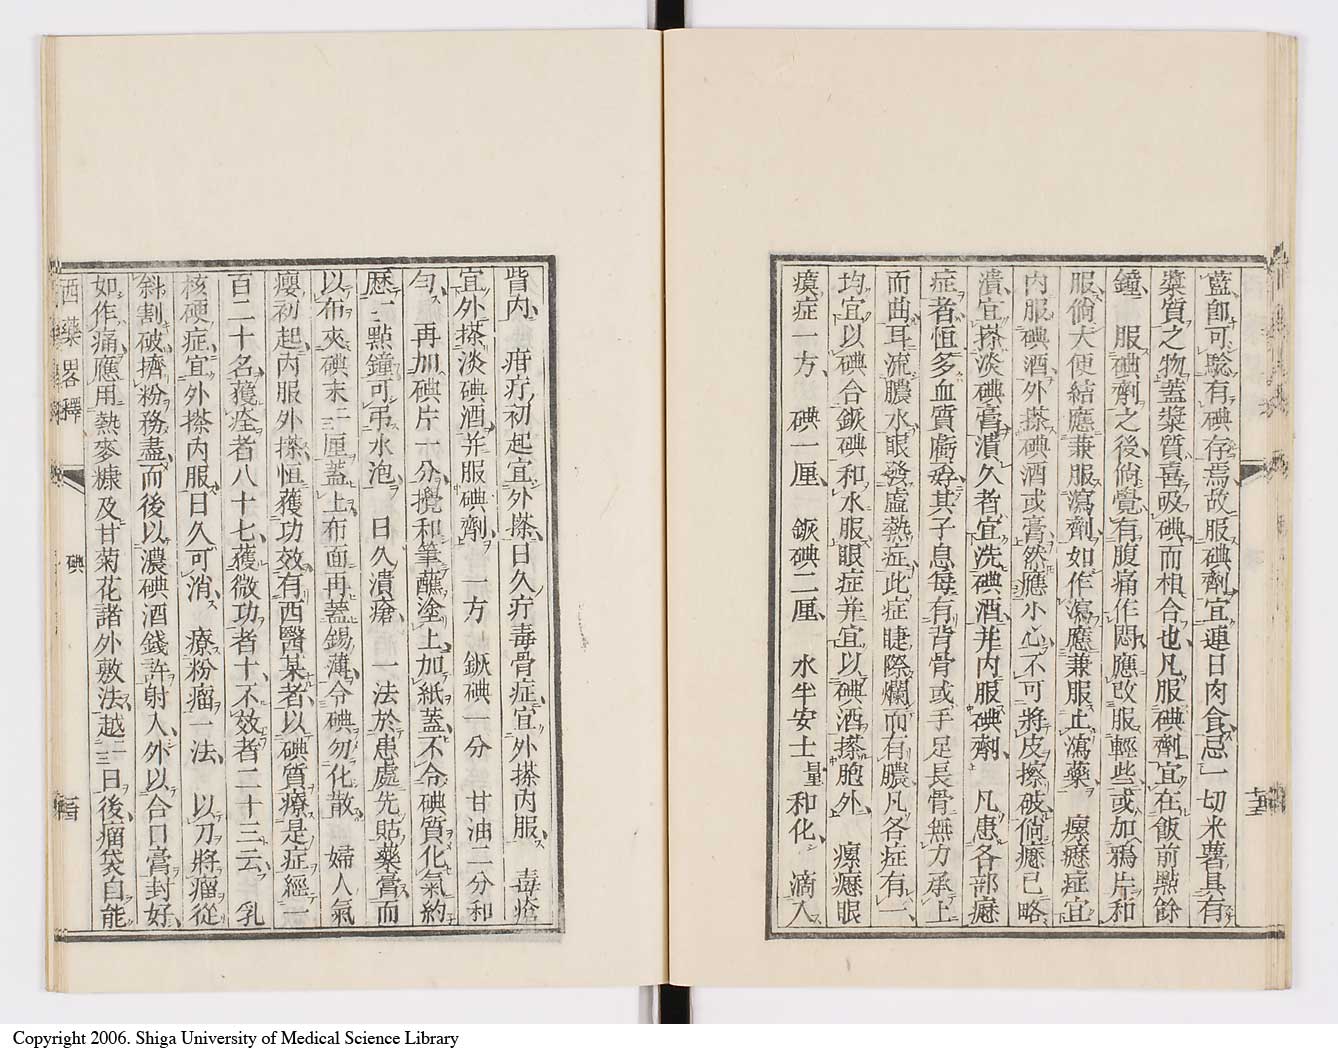 藍卽可驗有碘存焉故服碘劑宜連日肉食忌一切米薯具有
漿質之物蓋漿質喜吸碘而相合也凡服碘劑宜在飯前點餘
鐘　服碘劑之後倘覺有腹痛作悶應改服輕些或加鴉片和
服倘大便結應兼服瀉劑如作瀉應兼服止瀉藥　瘰癧症宜
內服碘酒外搽碘酒或膏然應小心不可將皮擦破倘癧已略
潰宜搽淡碘膏潰久者宜洗碘酒并內服碘劑　凡患各部癧
症者恒多血質虧孬其子息每有背骨或手足長骨無力承上
而曲耳流膿水眼發盧熱症此症睫際爛而有膿凡各症有一
均宜以碘合鉃碘和水服眼症并宜以碘酒搽胞外　瘰癧眼
癀症一方　碘一厘　鉃碘二厘　水半安士量和化　滴入
眥內　疳疔初起宜外搽日久疔毒骨症宜外搽內服　毒瘡
宜外搽淡碘酒并服碘劑　一方　鉃碘一分　甘油二分和
勻　再加碘片一分攪和筆蘸塗上加紙蓋不令碘質化氣約
歷一點鐘可弔水泡　日久潰瘡　一法於患處先貼藥膏而
以布夾碘末二三厘蓋上布面再蓋錫薄令碘勿化散　婦人氣
癭初起內服外搽恒獲功效有西醫某者以碘質療是症經一
百二十名獲痊者八十七獲微功者十不效者二十三云　乳
核硬症宜外搽內服日久可消　療粉瘤一法　以刀將瘤從
斜割破擠粉務盡而後以濃碘酒錢許射入外以合口膏封好
如作痛應用熱麥糠及甘菊花諸外敷法越二三日後瘤袋自能
西藥畧釋
碘
Copyright 2006. Shiga University of Medical Science Library